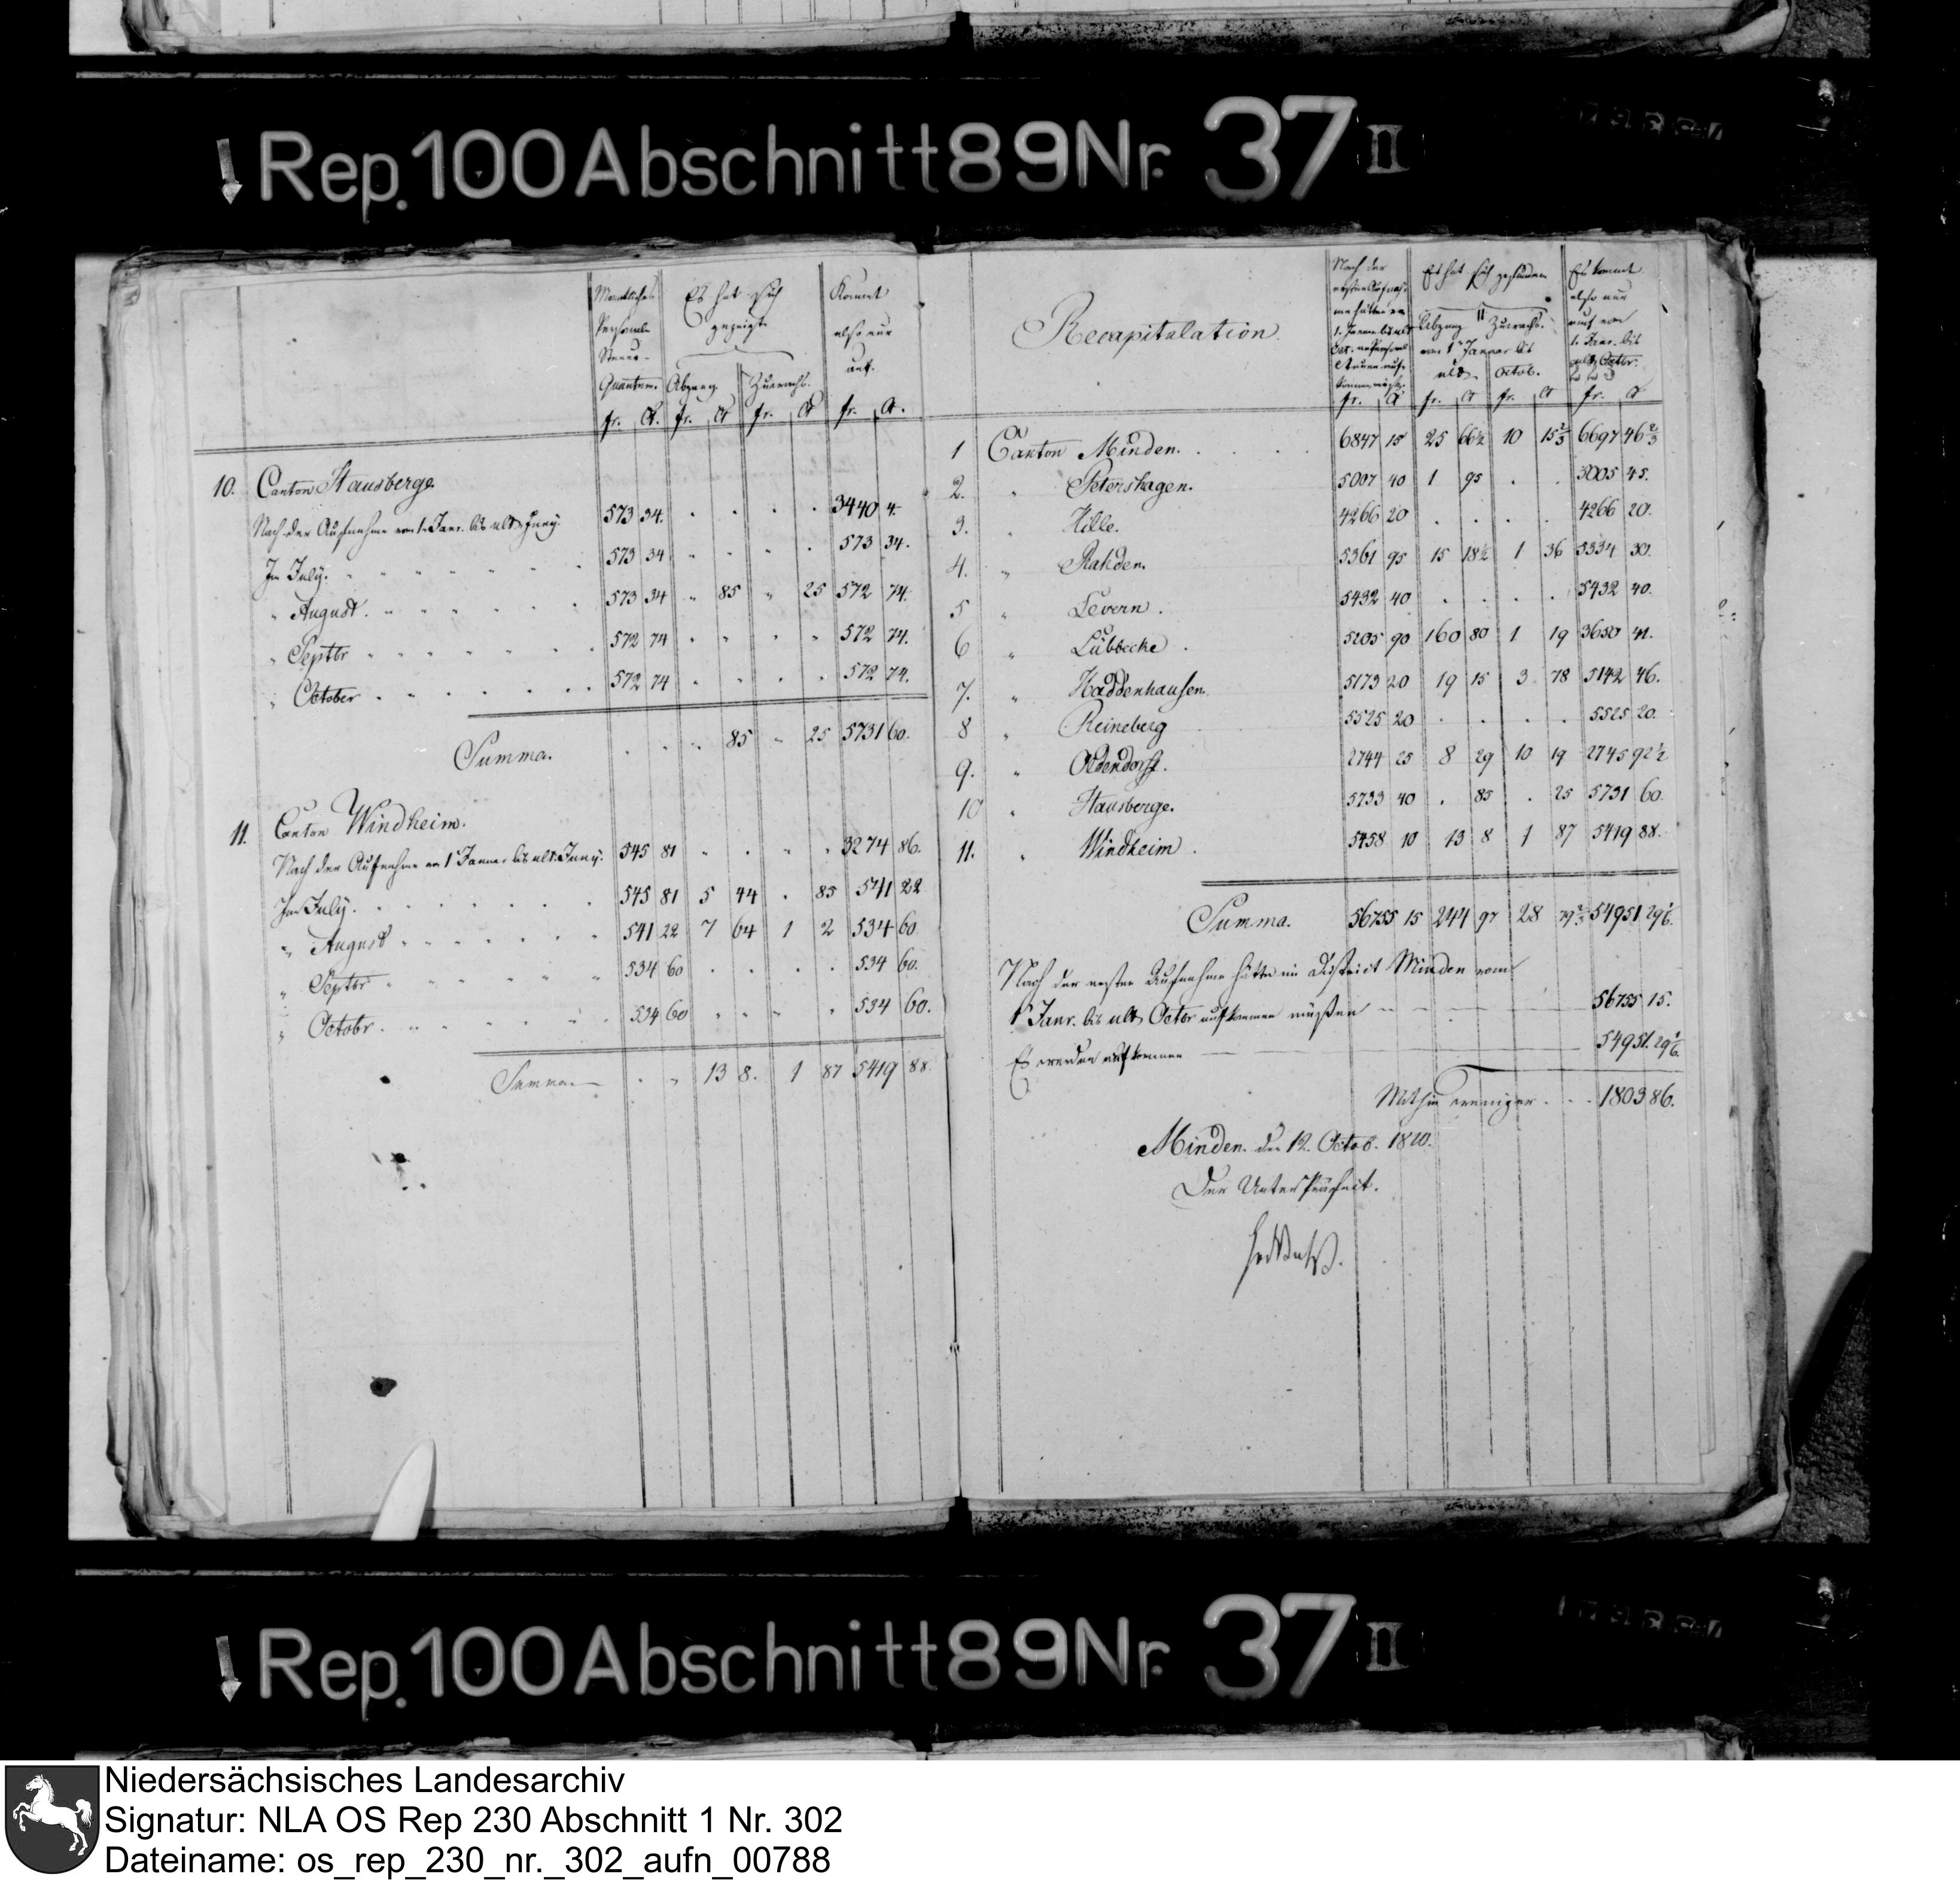 Rep. 100 Abschnitt 89 Nr. 37 II
Monatliches Personal- Steuer- Quantum.
Es hat sich gezeigt
Kommt also nur auf.
Abgang Zuwachs.
fr. Ct. fr. Ct fr. Ct fr. Ct.
10. Canton Hausberge
Nach der Aufnahme vom 1. Janr. bis ult. Juny. 573 34. 3440 4.
Im July. 573 34 573 34.
" August. 573 34 " 85 " 25 572 74.
" Septbr 572 74 572 74.
" October 572 74 572 74.
Summa. 85 " 25 5731 60.
11. Canton Windheim.
Nach der Aufnahme vom 1 Januar bis ult. Juny. 545 81 3274 86.
Im July. 545 81 5 44 . 85 541 22
" August 541 22 7 64 1 2 534 60
" Septbr 534 60 534 60.
" Octobr. 534 60 534 60.
Summa 13 8. 1 87 5419 88.
Recapitulation.
Nach der ersten Aufnahme hätten vom 1. Januar bis ult. Oct. an Personal Steuer aufkommen müßen.
Es hat sich gefunden
Abgang Zuwachs.
vom 1t Januar bis ult. Octob.
Es kommt also nur auf vom 1. Janr. bis ult. Octbr.
fr. Ct fr. Ct fr. Ct fr. Ct
1 Canton Minden. 6847 15 25 66½ 10 15⅔ 6697 46⅔
2. " Petershagen. 5007 40 1 95 . . 5005 45.
3. " Hille. 4266 20 . . . . 4266 20.
4. " Rahden. 5361 95 15 18½ 1 36 5334 30.
5 " Levern. 5432 40 . . . . 5432 40.
6 " Lübbecke. 5205 90 160 80 1 19 3650 41.
7. " Haddenhausen. 5173 20 19 15 3 78 5142 46.
8 " Reineberg 5525 20 . . . . 5525 20.
9. " Oldendorff. 2744 25 8 29 10 19 2745 92½
10 " Hausberge. 5733 40 . 85 . 25 5731 60.
11. " Windheim. 5458 10 13 8 1 87 5419 88.
Summa. 56755 15 244 97 28 79⅔ 54951 29⅙.
Nach der ersten Aufnahme hätte im District Minden vom
1t Janr. bis ult. Octbr aufkommen müßen 56755 15.
Es werden aufkommen 54951. 29⅙.
Mithin weniger 1803 86.
Minden den 12. Octob. 1810.
Der Unter Präfect.
Rep. 100 Abschnitt 89 Nr. 37 II
Niedersächsisches Landesarchiv
Signatur: NLA OS Rep 230 Abschnitt 1 Nr. 302
Dateiname: os_rep_230_nr._302_aufn_00788